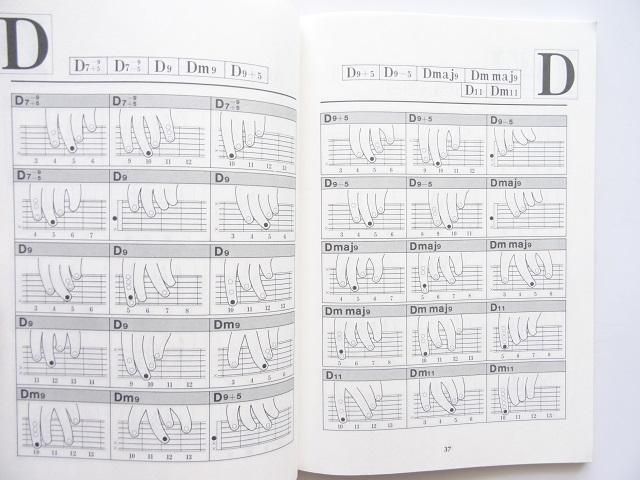 D
D7+5 9 D7-5 9 D9 Dm9 D9+5
D9+5 D9-5 Dmaj9 Dm maj9
D11 Dm11
D
3 4 5 6
9 10 11 12
10 11 12 13
D9 D9
4 5 6 7
3 4 5
D9 D9 D9
3 4 5 6
5 6 7 8
10 11 12 13
D9 D9 Dm9
11 12 13 14
9 10 11 12
3 4 5 6
Dm9 Dm9 D9+5
10 11 12 13
10 11 12 13
D9+5 D9+5 D9-5
3 4 5 6
9 10 11 12
D9-5 D9-5 Dmaj9
3 4 5 6
8 9 10 11
Dmaj9 Dmaj9 Dm maj9
3 4 5 6
5 6 7 8
3 4 5 6
Dm maj9 Dm maj9 D11
5 6 7 8
4 5 6 7
5 6 7 8
D11 Dm11 Dm11
10 11 12 13
3 4 5 6
10 11 12 13
37